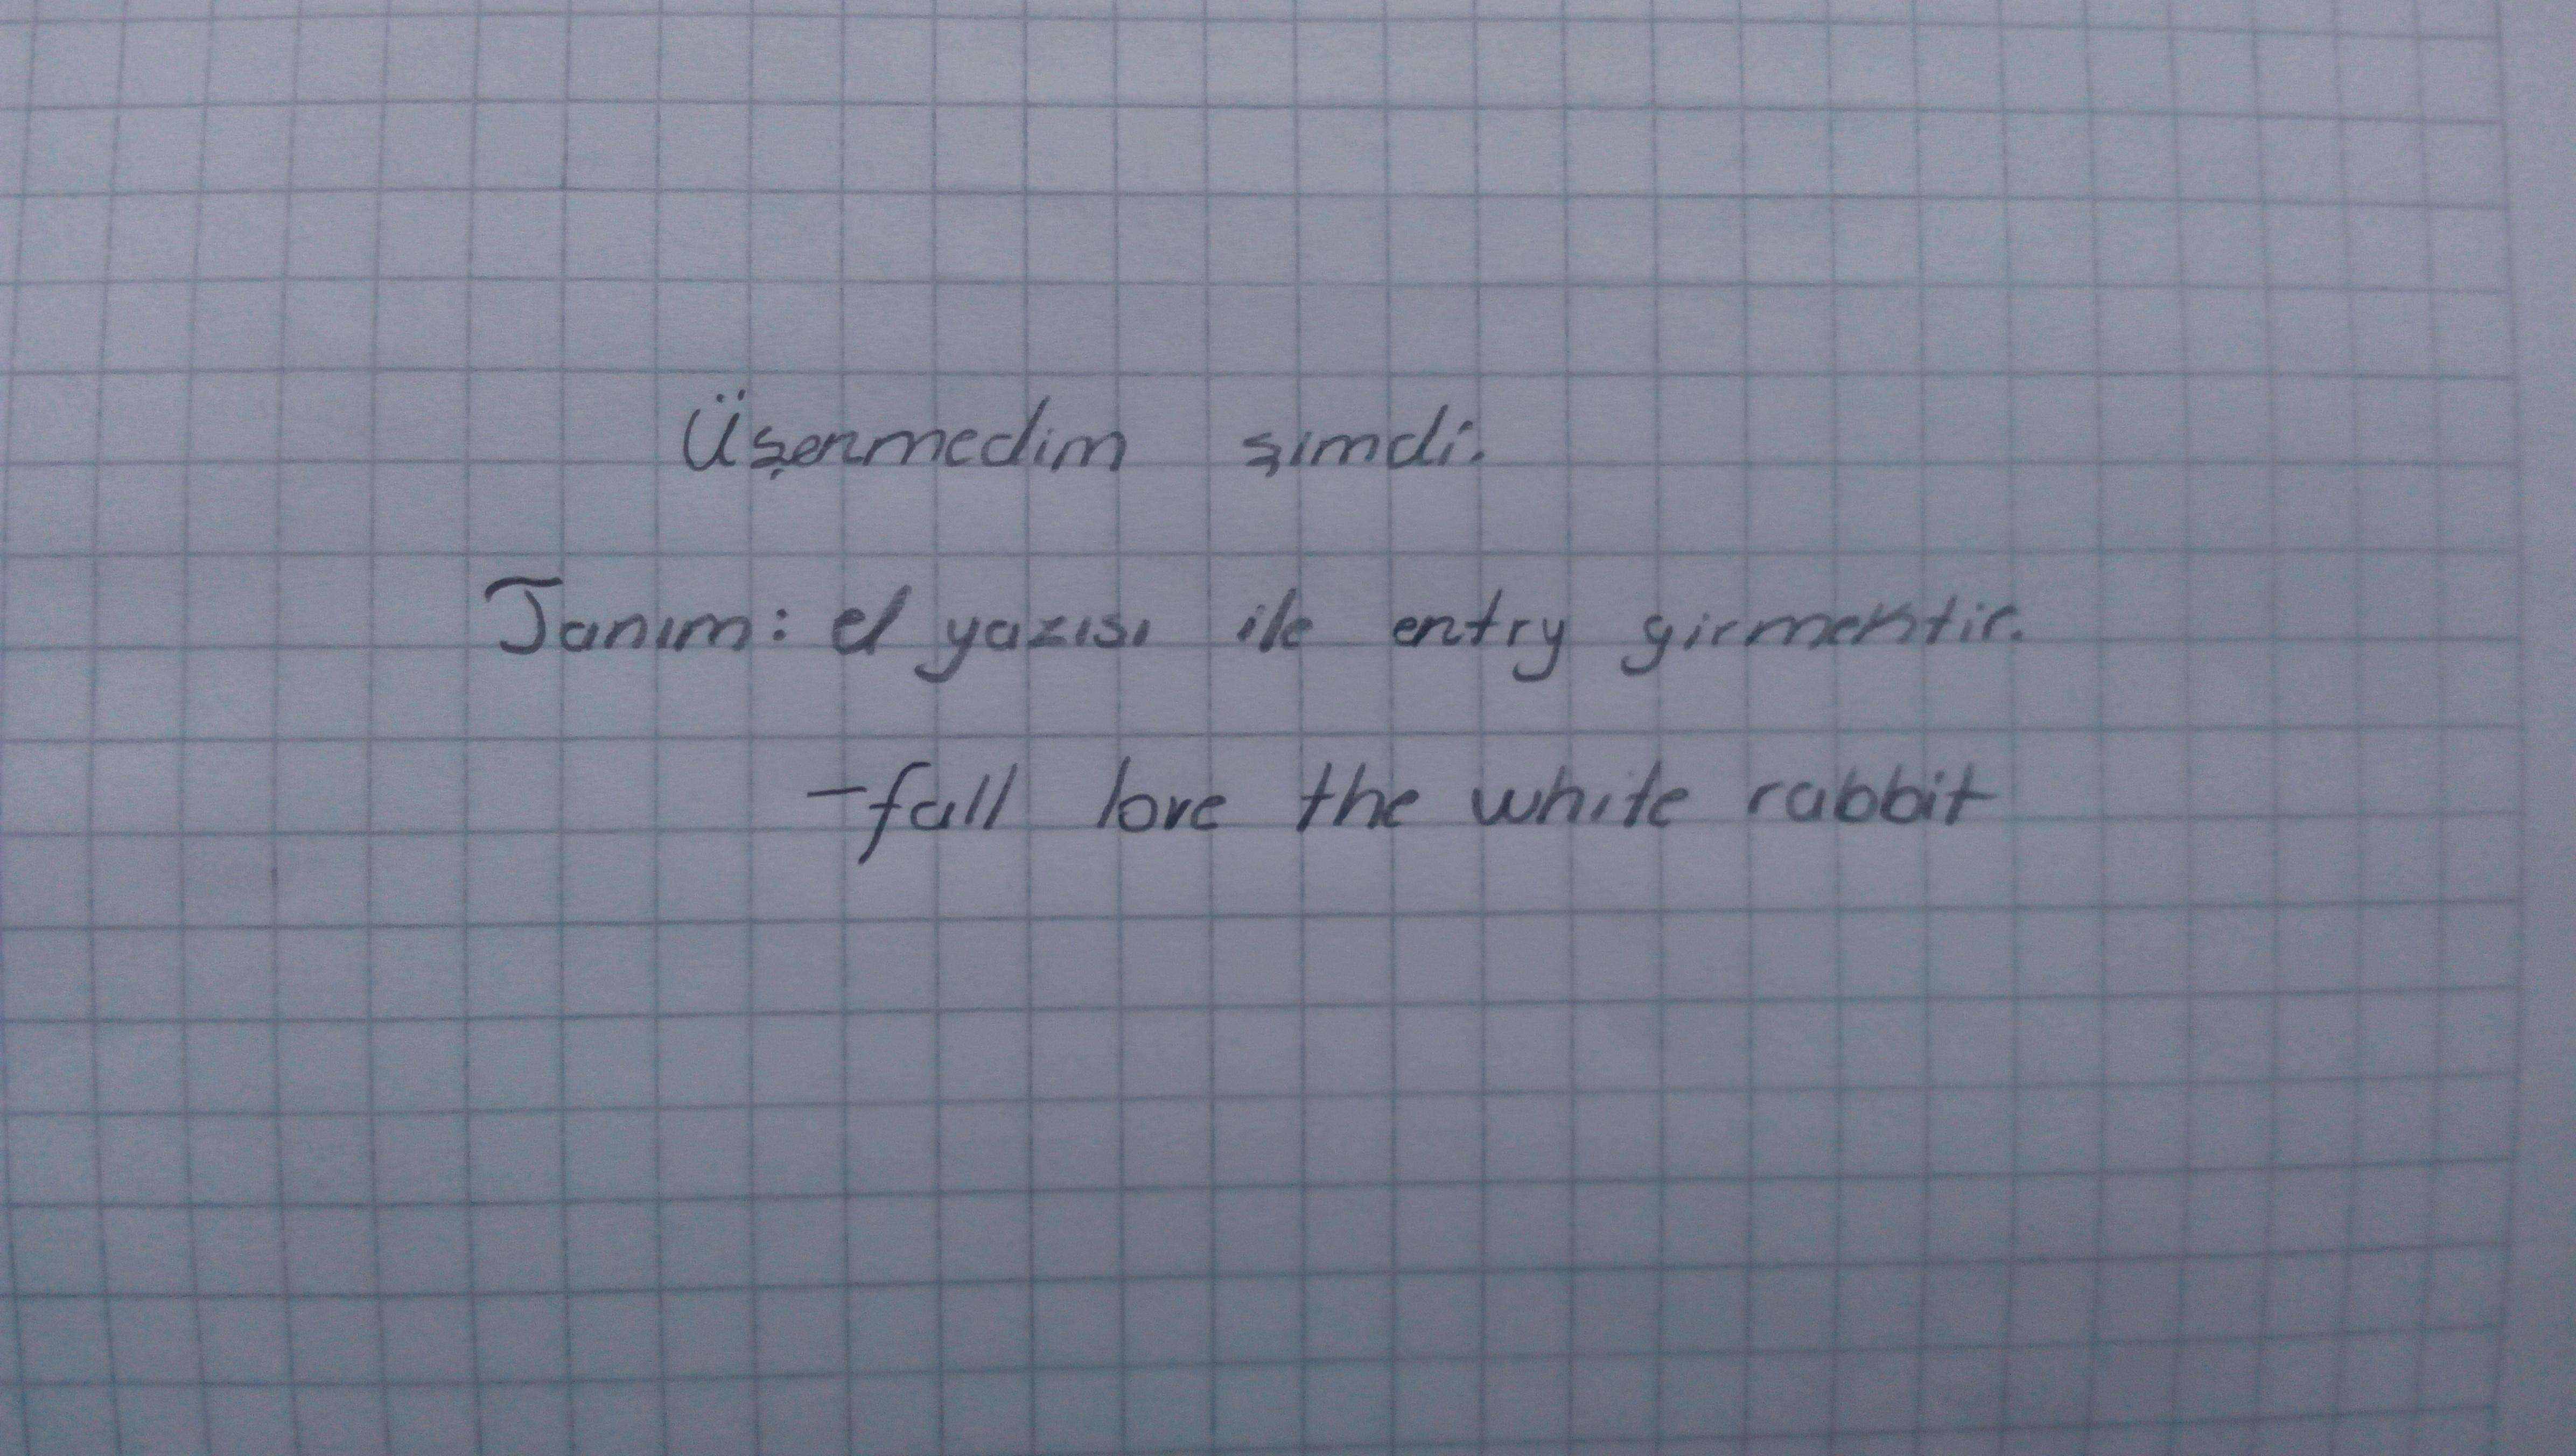 Üşenmedim şimdi.
Tanım: el yazısı ile entry girmektir.
-fall love the white rabbit